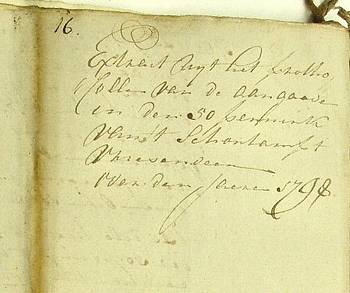 16.
Extract uyt het protho
collen van de aangaave
in den 50 pennink
van't Schoutampt
Vriesenveen
Over den Jaere 1798